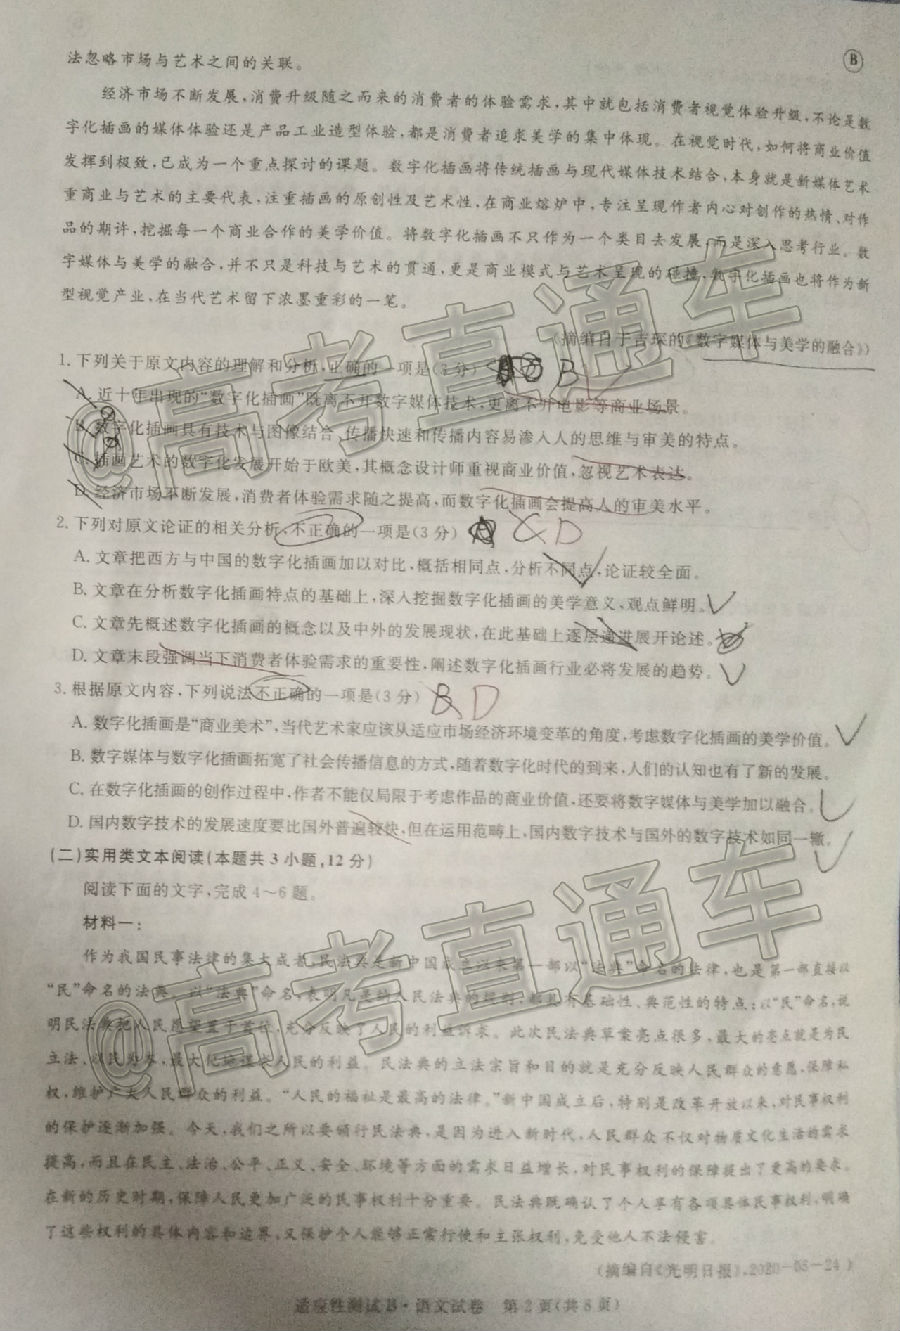 法忽略市场与艺术之间的关联。
B
经济市场不断发展,消费升级随之而来的消费者的体验需求,其中就包括消费者视觉体验升级,不论是数
字化插画的媒体体验还是产品工业造型体验,都是消费者追求美学的集中体现。在视觉时代,如何将商业价值
发挥到极致,已成为一个重点探讨的课题。数字化插画将传统插画与现代媒体技术结合,本身就是新媒体艺术
重商业与艺术的主要代表,注重插画的原创性及艺术性,在商业熔炉中,专注呈现作者内心对创作的热情、对作
品的期许,挖掘每一个商业合作的美学价值。将数字化插画不只作为一个类目去发展,而是深入思考行业。数
字媒体与美学的融合,并不只是科技与艺术的贯通,更是商业模式与艺术呈现的碰撞,数字化插画也将作为新
型视觉产业,在当代艺术留下浓墨重彩的一笔。
(摘编自于吉琛的《数字媒体与美学的融合》)
1. 下列关于原文内容的理解和分析,正确的一项是(3 分) B
A. 近十年出现的“数字化插画”既离不开数字媒体技术,更离不开电影等商业场景。
B. 数字化插画具有技术与图像结合、传播快速和传播内容易渗入人的思维与审美的特点。
C. 插画艺术的数字化发展开始于欧美,其概念设计师重视商业价值,忽视艺术表达。
D. 经济市场不断发展,消费者体验需求随之提高,而数字化插画会提高人的审美水平。
2. 下列对原文论证的相关分析,不正确的一项是(3 分) D
A. 文章把西方与中国的数字化插画加以对比,概括相同点,分析不同点,论证较全面。
B. 文章在分析数字化插画特点的基础上,深入挖掘数字化插画的美学意义、观点鲜明。
C. 文章先概述数字化插画的概念以及中外的发展现状,在此基础上逐层递进展开论述。
D. 文章末段强调当下消费者体验需求的重要性,阐述数字化插画行业必将发展的趋势。
3. 根据原文内容,下列说法不正确的一项是(3 分) B D
A. 数字化插画是“商业美术”,当代艺术家应该从适应市场经济环境变革的角度,考虑数字化插画的美学价值。
B. 数字媒体与数字化插画拓宽了社会传播信息的方式,随着数字化时代的到来,人们的认知也有了新的发展。
C. 在数字化插画的创作过程中,作者不能仅局限于考虑作品的商业价值,还要将数字媒体与美学加以融合。
D. 国内数字技术的发展速度要比国外普遍较快,但在运用范畴上,国内数字技术与国外的数字技术如同一辙。
(二)实用类文本阅读(本题共 3 小题,12 分)
阅读下面的文字,完成 4~6 题。
材料一:
作为我国民事法律的集大成者,民法典是新中国成立以来第一部以“法典”命名的法律,也是第一部直接以
“民”命名的法典。以“法典”命名,表明凡是纳入民法典的规则,都具有基础性、典范性的特点;以“民”命名,说
明民法典把人民愿望置于首位,充分反映了人民的利益诉求。此次民法典草案亮点很多,最大的亮点就是为民
立法、以民为本,最大化地谋求人民的利益。民法典的立法宗旨和目的就是充分反映人民群众的意愿,保障私
权,维护广大人民群众的利益。“人民的福祉是最高的法律。”新中国成立后,特别是改革开放以来,对民事权利
的保护逐渐加强。今天,我们之所以要颁行民法典,是因为进入新时代,人民群众不仅对物质文化生活的需求
提高,而且在民主、法治、公平、正义、安全、环境等方面的需求日益增长,对民事权利的保障提出了更高的要求。
在新的历史时期,保障人民更加广泛的民事权利十分重要。民法典既确认了个人享有各项具体民事权利,明确
了这些权利的具体内容和边界,又保护个人能够正常行使和主张权利,免受他人不法侵害。
(摘编自《光明日报》,2020-05-24)
适应性测试B·语文试卷 第 2 页(共 8 页)
@高考直通车
@高考直通车